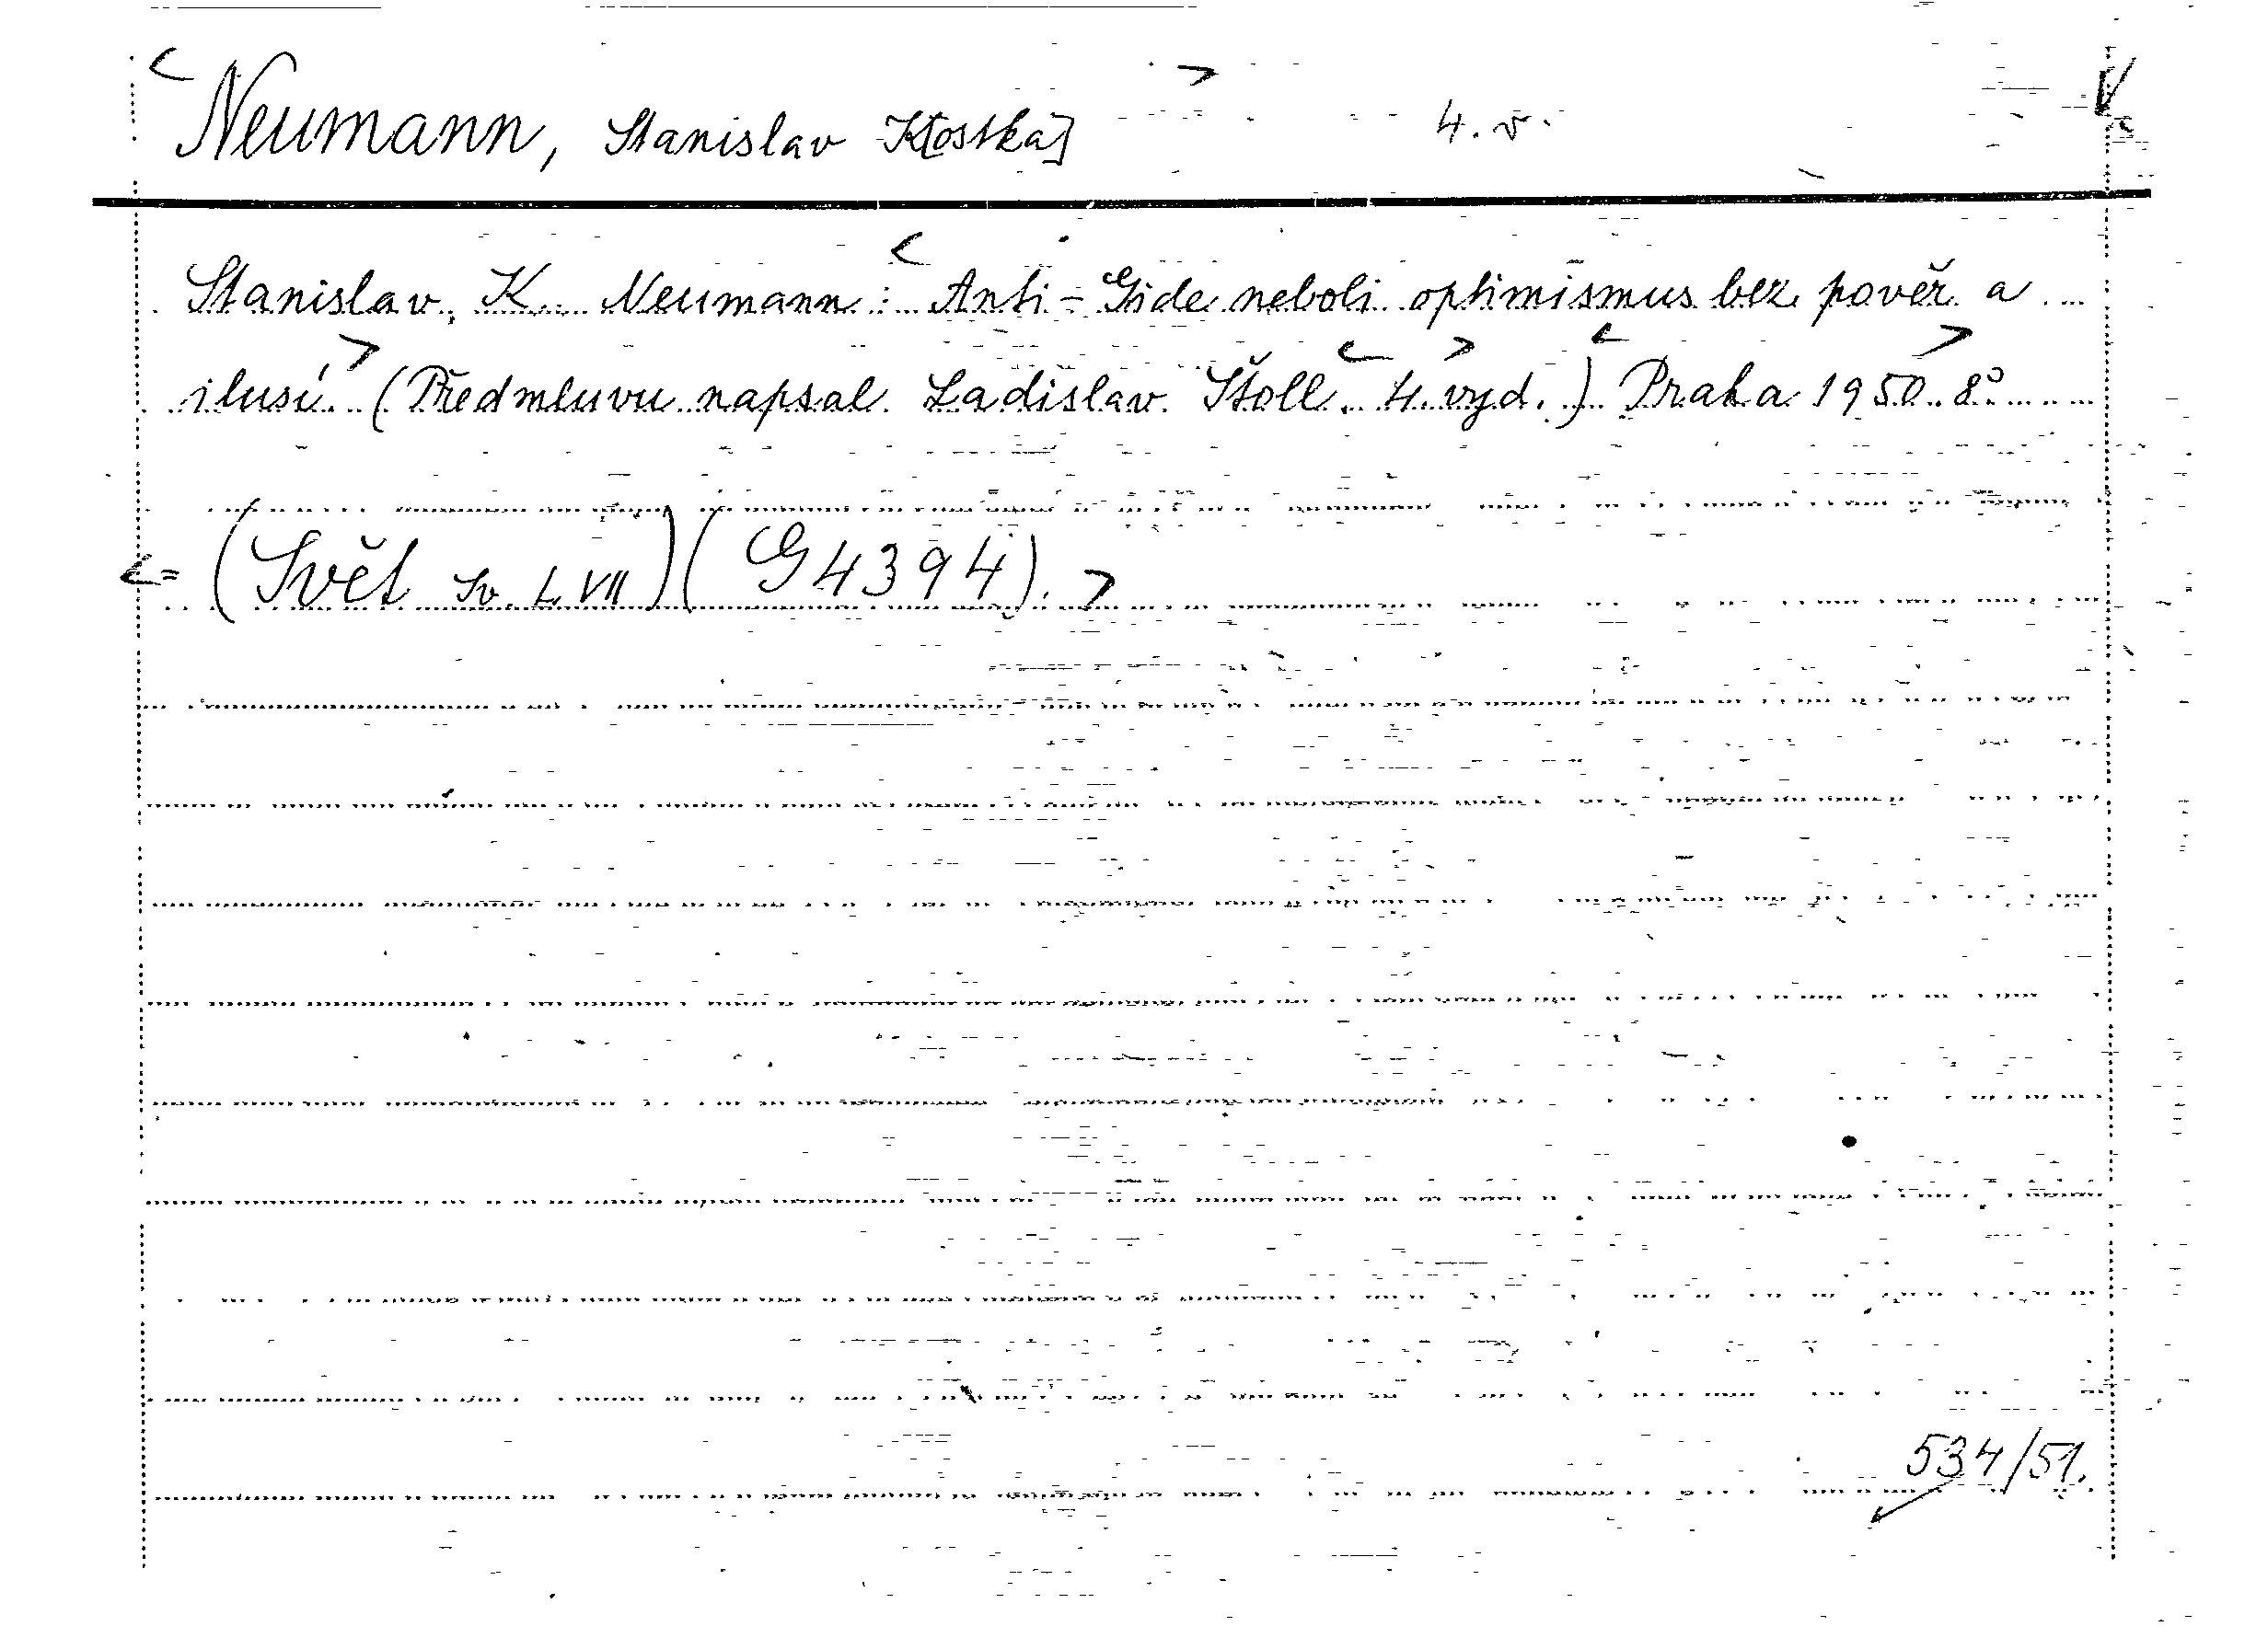 Neumann, Stanislav K[ostka] 4. v.
Stanislav K. Neumann: Anti-Gide neboli optimismus bez pověr a
ilusí. (Předmluvu napsal Ladislav Štoll. 4. vyd.) Praha 1950. 8°
= (Svět sv. LVII) (G 4394).
534/51.